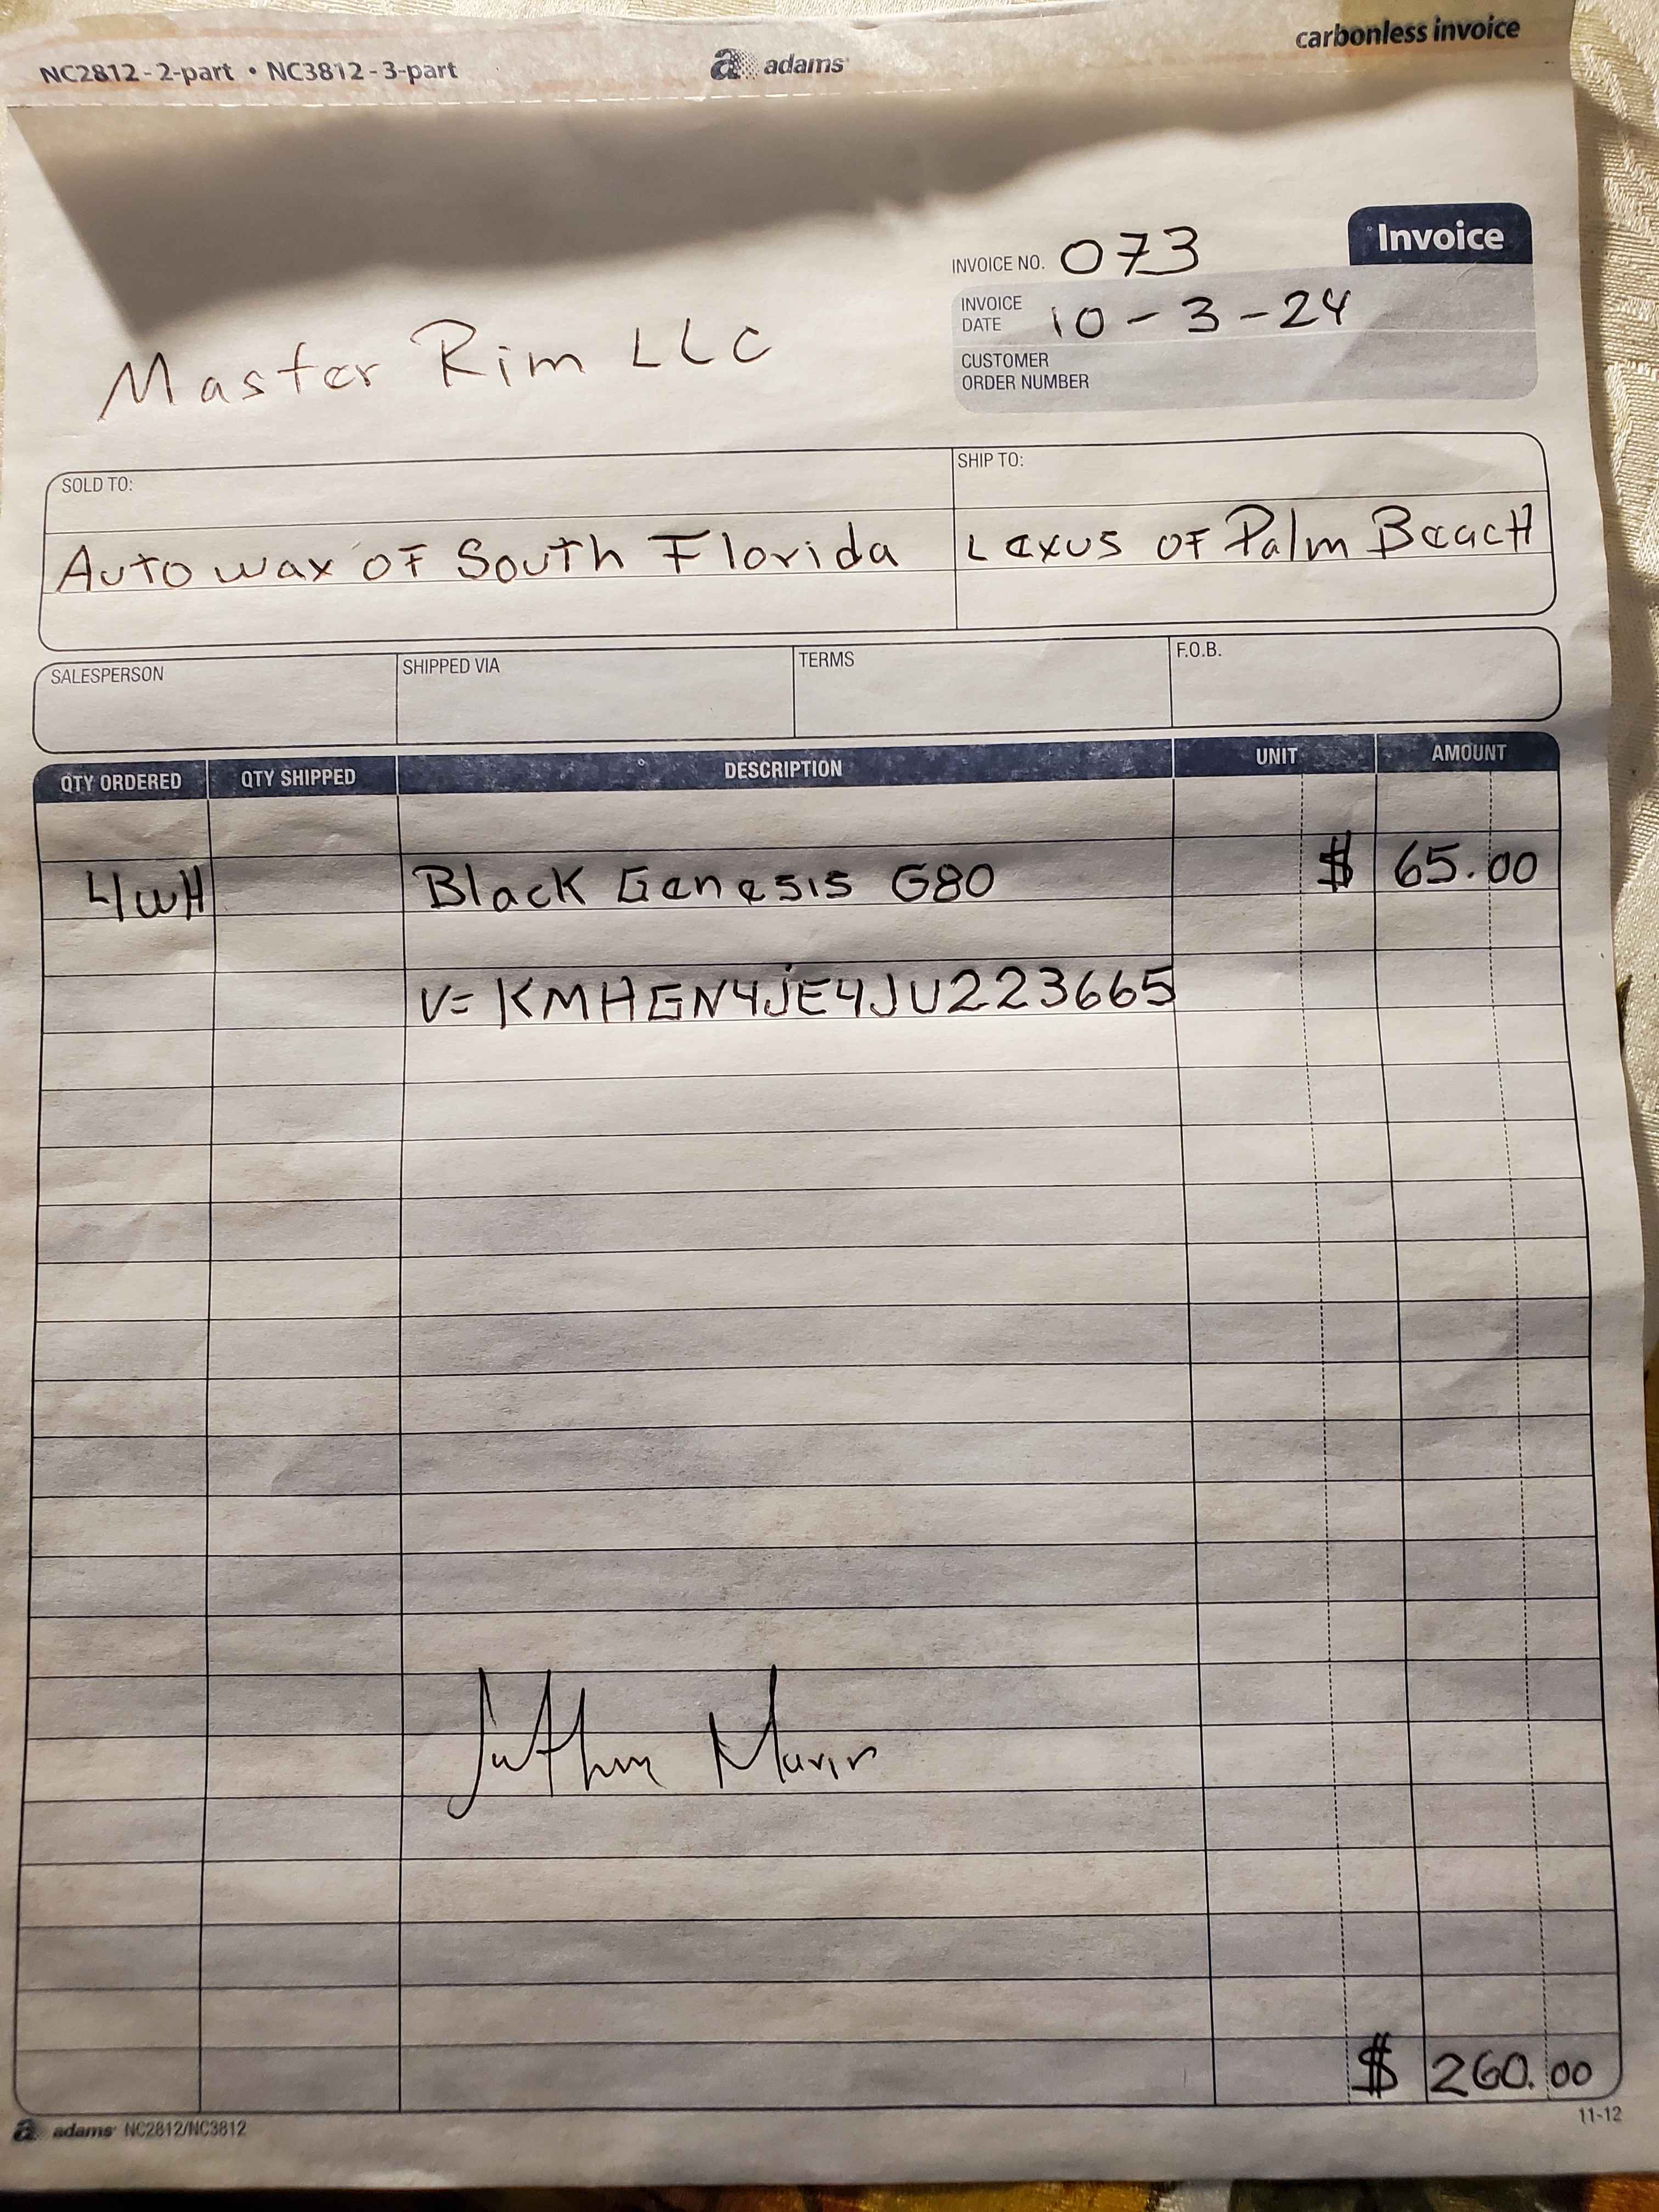 NC2812 - 2-part • NC3812 - 3-part
adams
carbonless invoice
Invoice
INVOICE NO. 073
INVOICE DATE 10-3-24
CUSTOMER ORDER NUMBER
Master Rim LLC
SOLD TO:
SHIP TO:
Auto wax of South Florida
Lexus of Palm Beach
SALESPERSON
SHIPPED VIA
TERMS
F.O.B.
QTY ORDERED
QTY SHIPPED
DESCRIPTION
UNIT
AMOUNT
4/wH Black Genesis G80 $ 65.00
V= KMHGN4JE4JU223665
$ 260.00
adams NC2812/NC3812
11-12